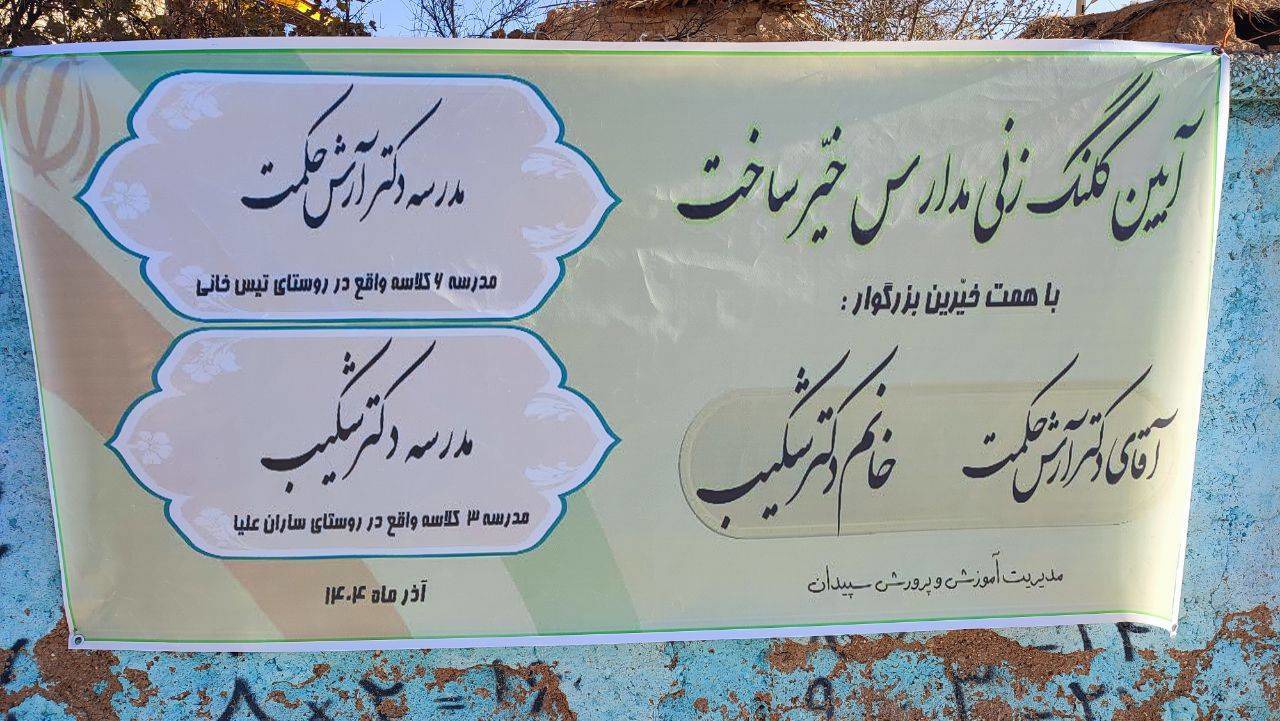 آیین کلنگ زنی مدارس خیّر ساخت
با همت خیّرین بزرگوار :
آقای دکتر آرش حکمت
خانم دکتر شکیب
مدیریت آموزش و پرورش سپیدان
مدرسه دکتر آرش حکمت
مدرسه ۶ کلاسه واقع در روستای تیس خانی
مدرسه دکتر شکیب
مدرسه ۳ کلاسه واقع در روستای ساران علیا
آذر ماه ۱۴۰۴
۸×۲=۱۶